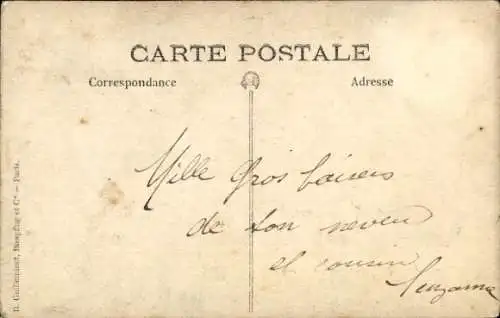 CARTE POSTALE
Correspondance
Adresse
Mille gros baisers
de ton neveu
et cousin
Suzanne
R. Guilleminot, Bœspflug et Cie — Paris.